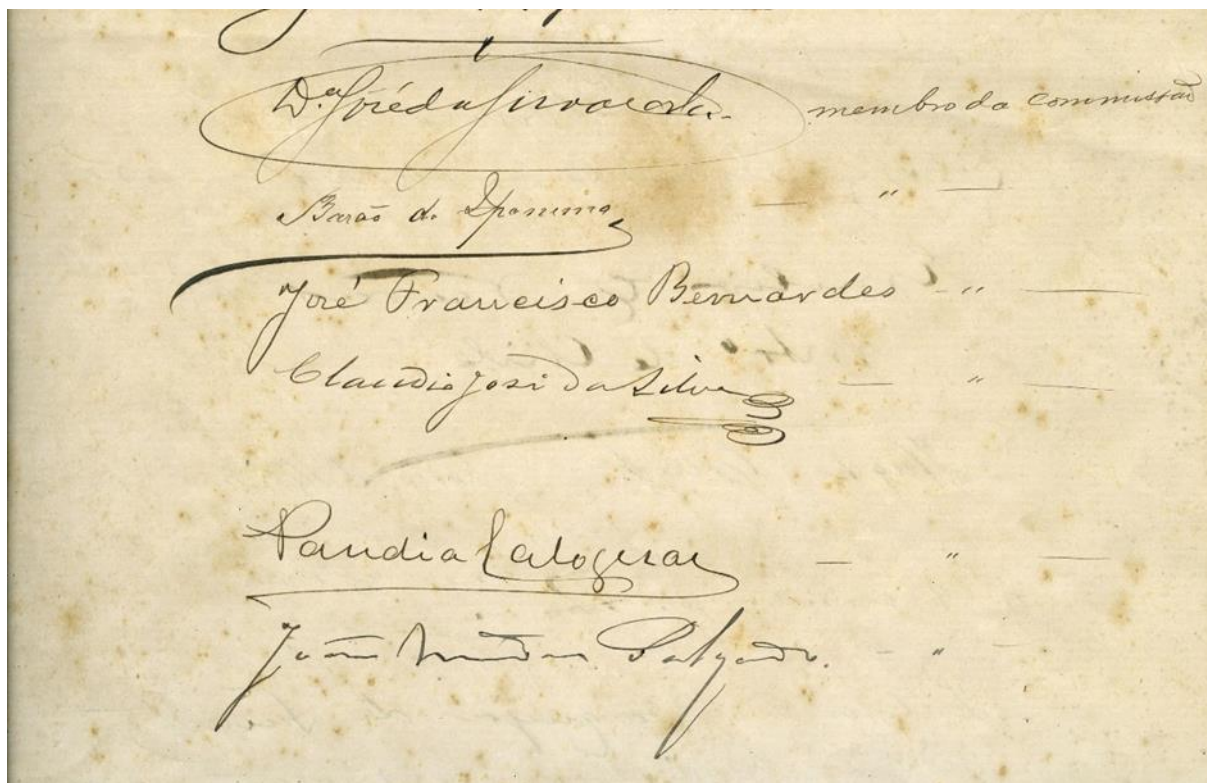 D.or José da Silva Costa. membro da commissão
Barão de Ipanema — " —
José Francisco Bernardes - " —
Claudio José da Silva — " —
Pandia Calogeras — " —
João Mendes Salgado. - " -